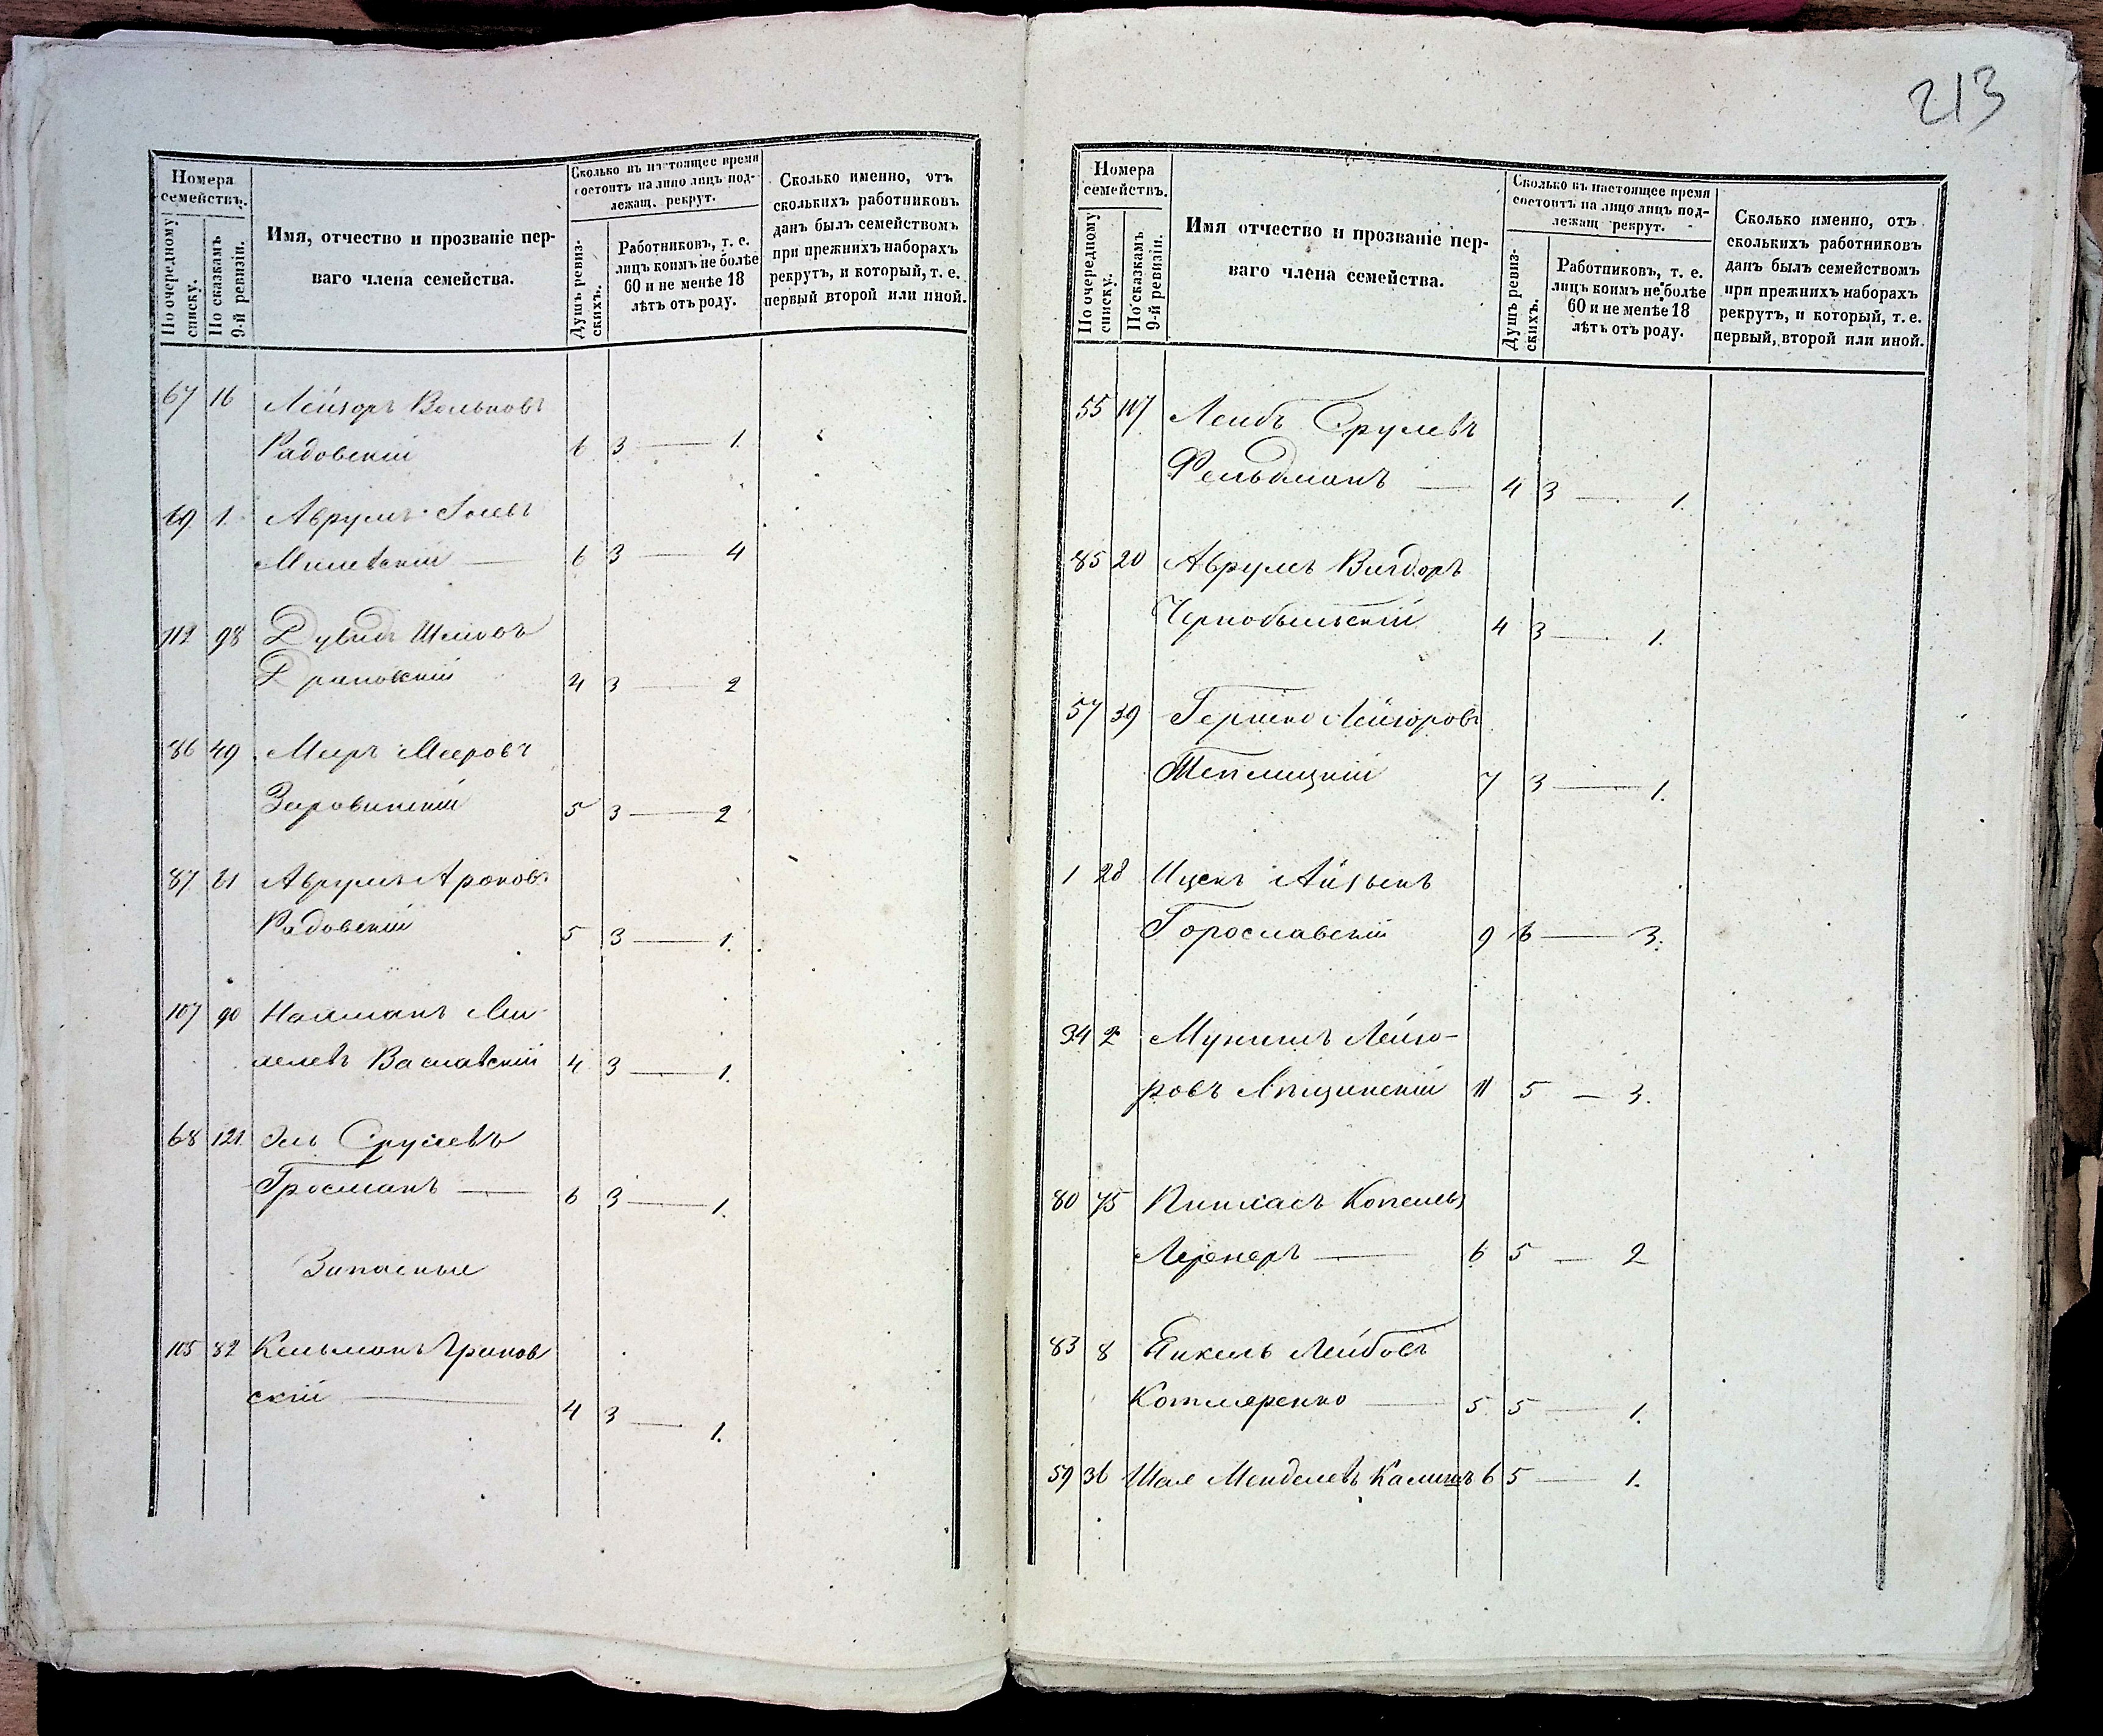 213
Номера семействъ.
По очередному списку.
По сказкамъ 9-й ревизіи.
Имя, отчество и прозваніе пер-
ваго члена семейства.
Сколько въ настоящее время
состоитъ на лицо лицъ под-
лежащ. рекрут.
Душъ ревиз-
скихъ.
Работниковъ, т. е.
лицъ коимъ не болѣе
60 и не менѣе 18
лѣтъ отъ роду.
Сколько именно, отъ
сколькихъ работниковъ
данъ былъ семействомъ
при прежнихъ наборахъ
рекрутъ, и который, т. е.
первый второй или иной.
67 16 Лейзоръ Вольковъ
Радовскій 6 3 — 1.
69 1. Аврумъ
6 3 — 4
112 98 Дувидъ
4 3 — 2
86 49 Мееръ Мееровъ
5 3 — 2
87 21 Аврумъ Ароновъ
Радовскій 5 3 — 1.
107 90
Ваславскій 4 3 — 1.
68 121. Эль Срулевъ
Гросманъ — 6 3 — 1.
Запасные
105 82 Кельманъ
скій — 4 3 — 1.
Номера
семействъ.
По очередному
списку.
По сказкамъ
9-й ревизіи.
Имя отчество и прозваніе пер-
ваго члена семейства.
Сколько въ настоящее время
состоитъ на лицо лицъ под-
лежащ рекрут.
Душъ ревиз-
скихъ.
Работниковъ, т. е.
лицъ коимъ не болѣе
60 и не менѣе 18
лѣтъ отъ роду.
Сколько именно, отъ
сколькихъ работниковъ
данъ былъ семействомъ
при прежнихъ наборахъ
рекрутъ, и который, т. е.
первый, второй или иной.
55 117 Лейбъ Срулевъ
Фельдманъ — 4 3 — 1.
85 20 Аврумъ Вигдоръ
Чернобыльскій 4 3 — 1.
57 39 Гершко Лейзоровъ
Теплицкій 7 3 — 1.
1 28 Ицекъ Айзыкъ
Горославскій 9 6 — 3.
34 2 Мунишъ Лейзо-
ровъ Лещинскій 11 5 — 3.
80 75 Пинхасъ Копелевъ
6 5 — 2
83 8 Янкель Лейбовъ
Котляренко — 5 5 — 1.
59 36 Шая Менделевъ 6 5 — 1.